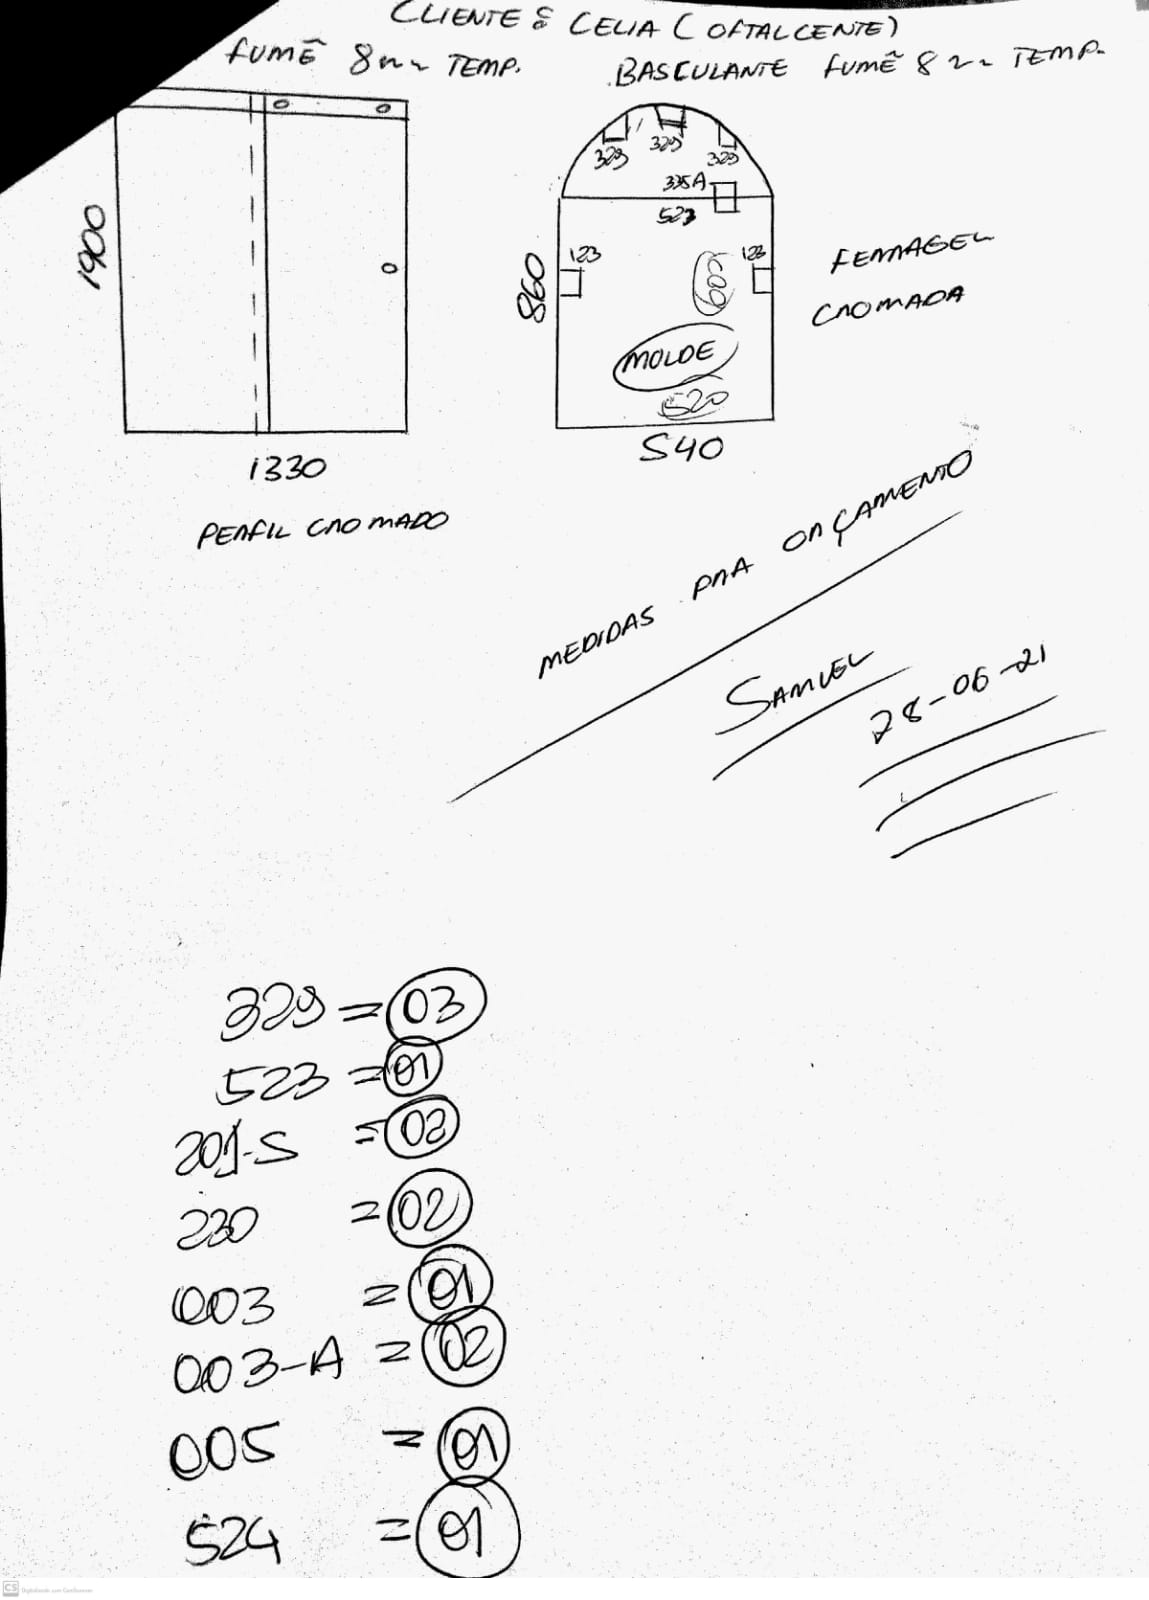 CLIENTE: CELIA (OFTALCENTE)
FUMÊ 8mm TEMP.
BASCULANTE FUMÊ 8mm TEMP.
329 329 329
335A
523
123 123
1900
860
600
MOLDE
520
540
1330
PERFIL CROMADO
FERRAGEM
CROMADA
MEDIDAS PRA ORÇAMENTO
SAMUEL
28-06-21
329 = 03
523 = 01
201-S =
230 = 02
003 = 01
003-A = 02
005 = 01
524 = 01
CS Digitalizado com CamScanner